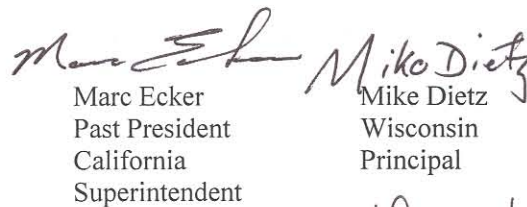 Marc Ecker Mike Dietz
Marc Ecker
Past President
California
Superintendent
Mike Dietz
Wisconsin
Principal